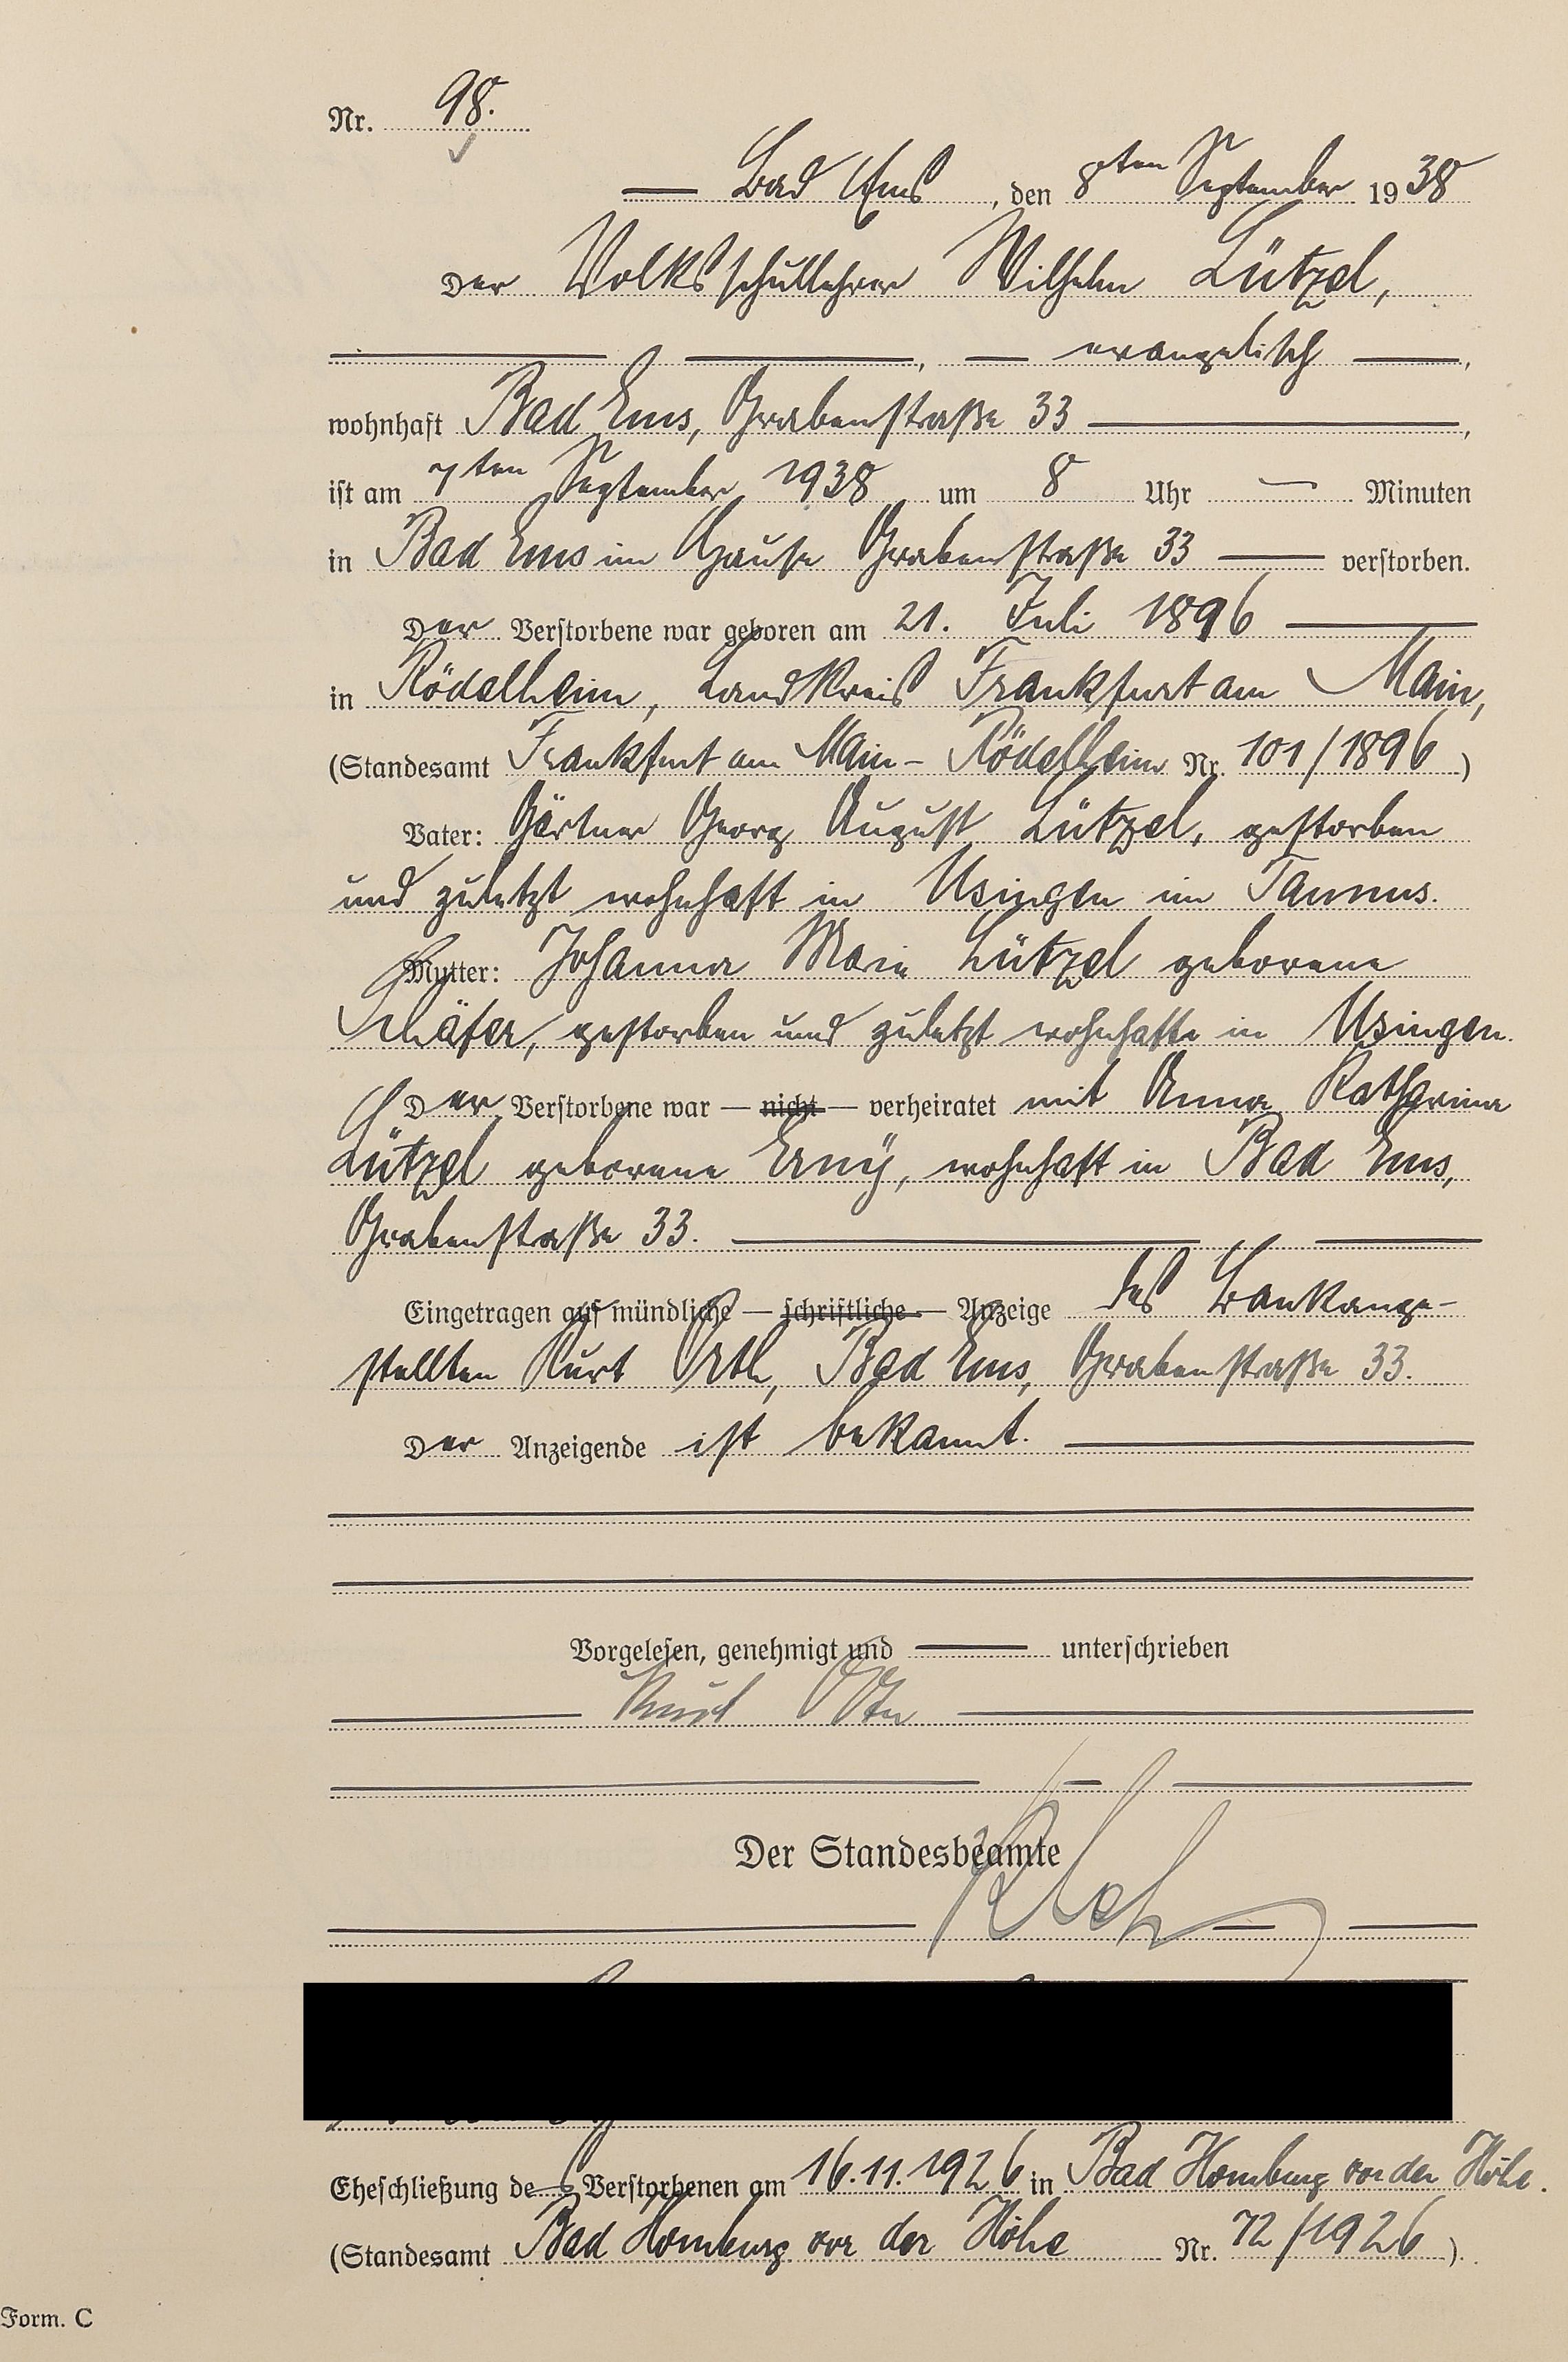 Nr. 98.
Bad Ems, den 8ten September 1938
Der Volksschullehrer Wilhelm Lützel,
evangelisch,
wohnhaft Bad Ems, Grabenstraße 33,
ist am 7ten September 1938 um 8 Uhr — Minuten
in Bad Ems im Hause Grabenstraße 33 verstorben.
Der Verstorbene war geboren am 21. Juli 1896
in Rödelheim, Landkreis Frankfurt am Main,
(Standesamt Frankfurt am Main-Rödelheim Nr. 101/1896)
Vater: Gärtner Georg August Lützel, gestorben
und zuletzt wohnhaft in Usingen im Taunus.
Mutter: Johanna Marie Lützel geborene
Schäfer, gestorben und zuletzt wohnhafte in Usingen.
Der Verstorbene war — nicht — verheiratet mit Anna Katharina
Lützel geborene Erny, wohnhaft in Bad Ems,
Grabenstraße 33.
Eingetragen auf mündliche — schriftliche — Anzeige des Bankange-
stellten Kurt Orth, Bad Ems, Grabenstraße 33.
Der Anzeigende ist bekannt.
Vorgelesen, genehmigt und unterschrieben
Kurt Orth
Der Standesbeamte
Eheschließung des Verstorbenen am 16.11.1926 in Bad Homburg vor der Höhe.
(Standesamt Bad Homburg vor der Höhe Nr. 72/1926).
Form. C